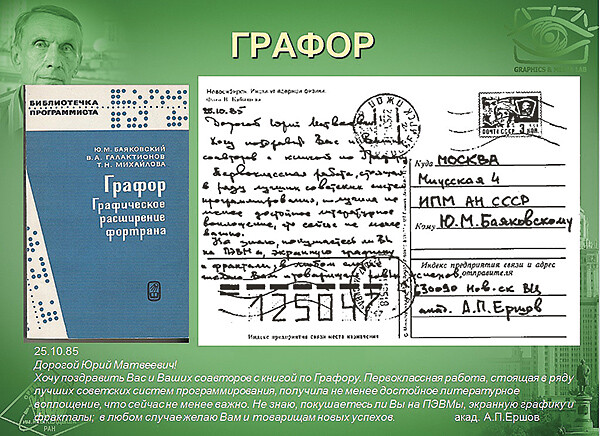 ГРАФОР
GRAPHICS & MEDIA LAB
БИБЛИОТЕЧКА
ПРОГРАММИСТА
Ю.М. БАЯКОВСКИЙ
В.А. ГАЛАКТИОНОВ
Т.Н. МИХАЙЛОВА
Графор
Графическое
расширение
фортрана
Новосибирск. Институт ядерной физики.
25.10.85
Дорогой Юрий Матвеевич!
Хочу поздравить Вас и Ваших
соавторов с книгой по Графору.
Первоклассная работа, стоящая в
ряду лучших советских систем
программирования, получила не
менее достойное литературное
воплощение, что сейчас не менее
важно.
Не знаю, покушаетесь ли Вы
на ПЭВМы, экранную графику
и фракталы; в любом случае
желаю Вам и товарищам новых
успехов.
ПОЧТА СССР 3 коп.
Куда МОСКВА
Миусская 4
ИПМ АН СССР
Кому Ю.М. Баяковскому
Индекс предприятия связи и адрес
отправителя
630090 Нов-ск ВЦ
акад. А.П. Ершов
125047
Индекс предприятия связи места назначения
25.10.85
Дорогой Юрий Матвеевич!
Хочу поздравить Вас и Ваших соавторов с книгой по Графору. Первоклассная работа, стоящая в ряду
лучших советских систем программирования, получила не менее достойное литературное
воплощение, что сейчас не менее важно. Не знаю, покушаетесь ли Вы на ПЭВМы, экранную графику и
фракталы; в любом случае желаю Вам и товарищам новых успехов. акад. А.П.Ершов